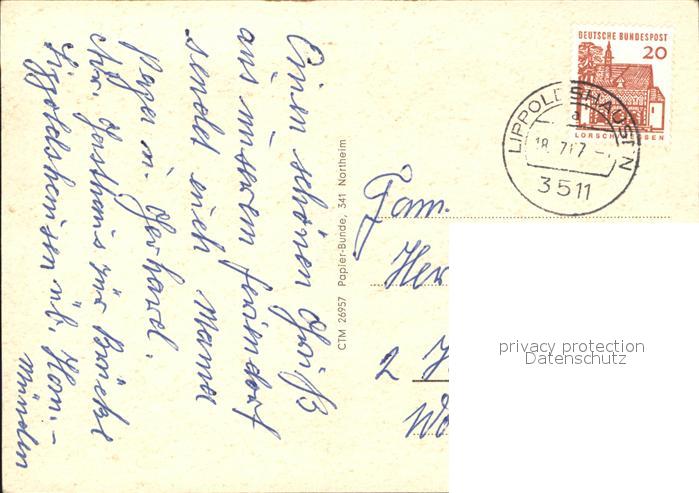 Einen schönen Gruß
aus unserem Feriendorf
sendet euch Mama
Papa u. Gerhard.
Gasthaus zur Brücke
Lippoldshausen üb. Han.-
Münden
CTM 26957 Papier-Bunde, 341 Northeim
DEUTSCHE BUNDESPOST
20
LORSCH/HESSEN
LIPPOLDSHAUSEN
a
18.7.67
3511
Fam.
Her
2 H
Wo
privacy protection
Datenschutz